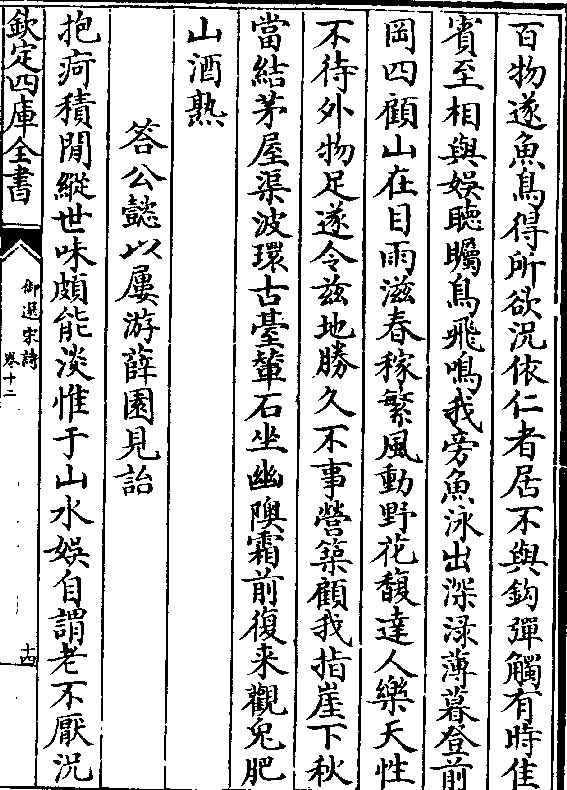 百物遂魚鳥得所欲況依仁者居不與鈎彈觸有時佳
賓至相與娛聽矚鳥飛鳴我旁魚泳出深渌薄暮登前
岡四顧山在目雨滋春稼繁風動野花馥達人樂天性
不待外物足遂令兹地勝久不事營築顧我指崖下秋
當結茅屋渠波環古臺輦石坐幽隩霜前復来觀兔肥
山酒熟
荅公懿以屢游薛園見詒
抱疴積閒縱世味頗能淡惟于山水娛自謂老不厭況
欽定四庫全書
御選宋詩
卷十二
十四